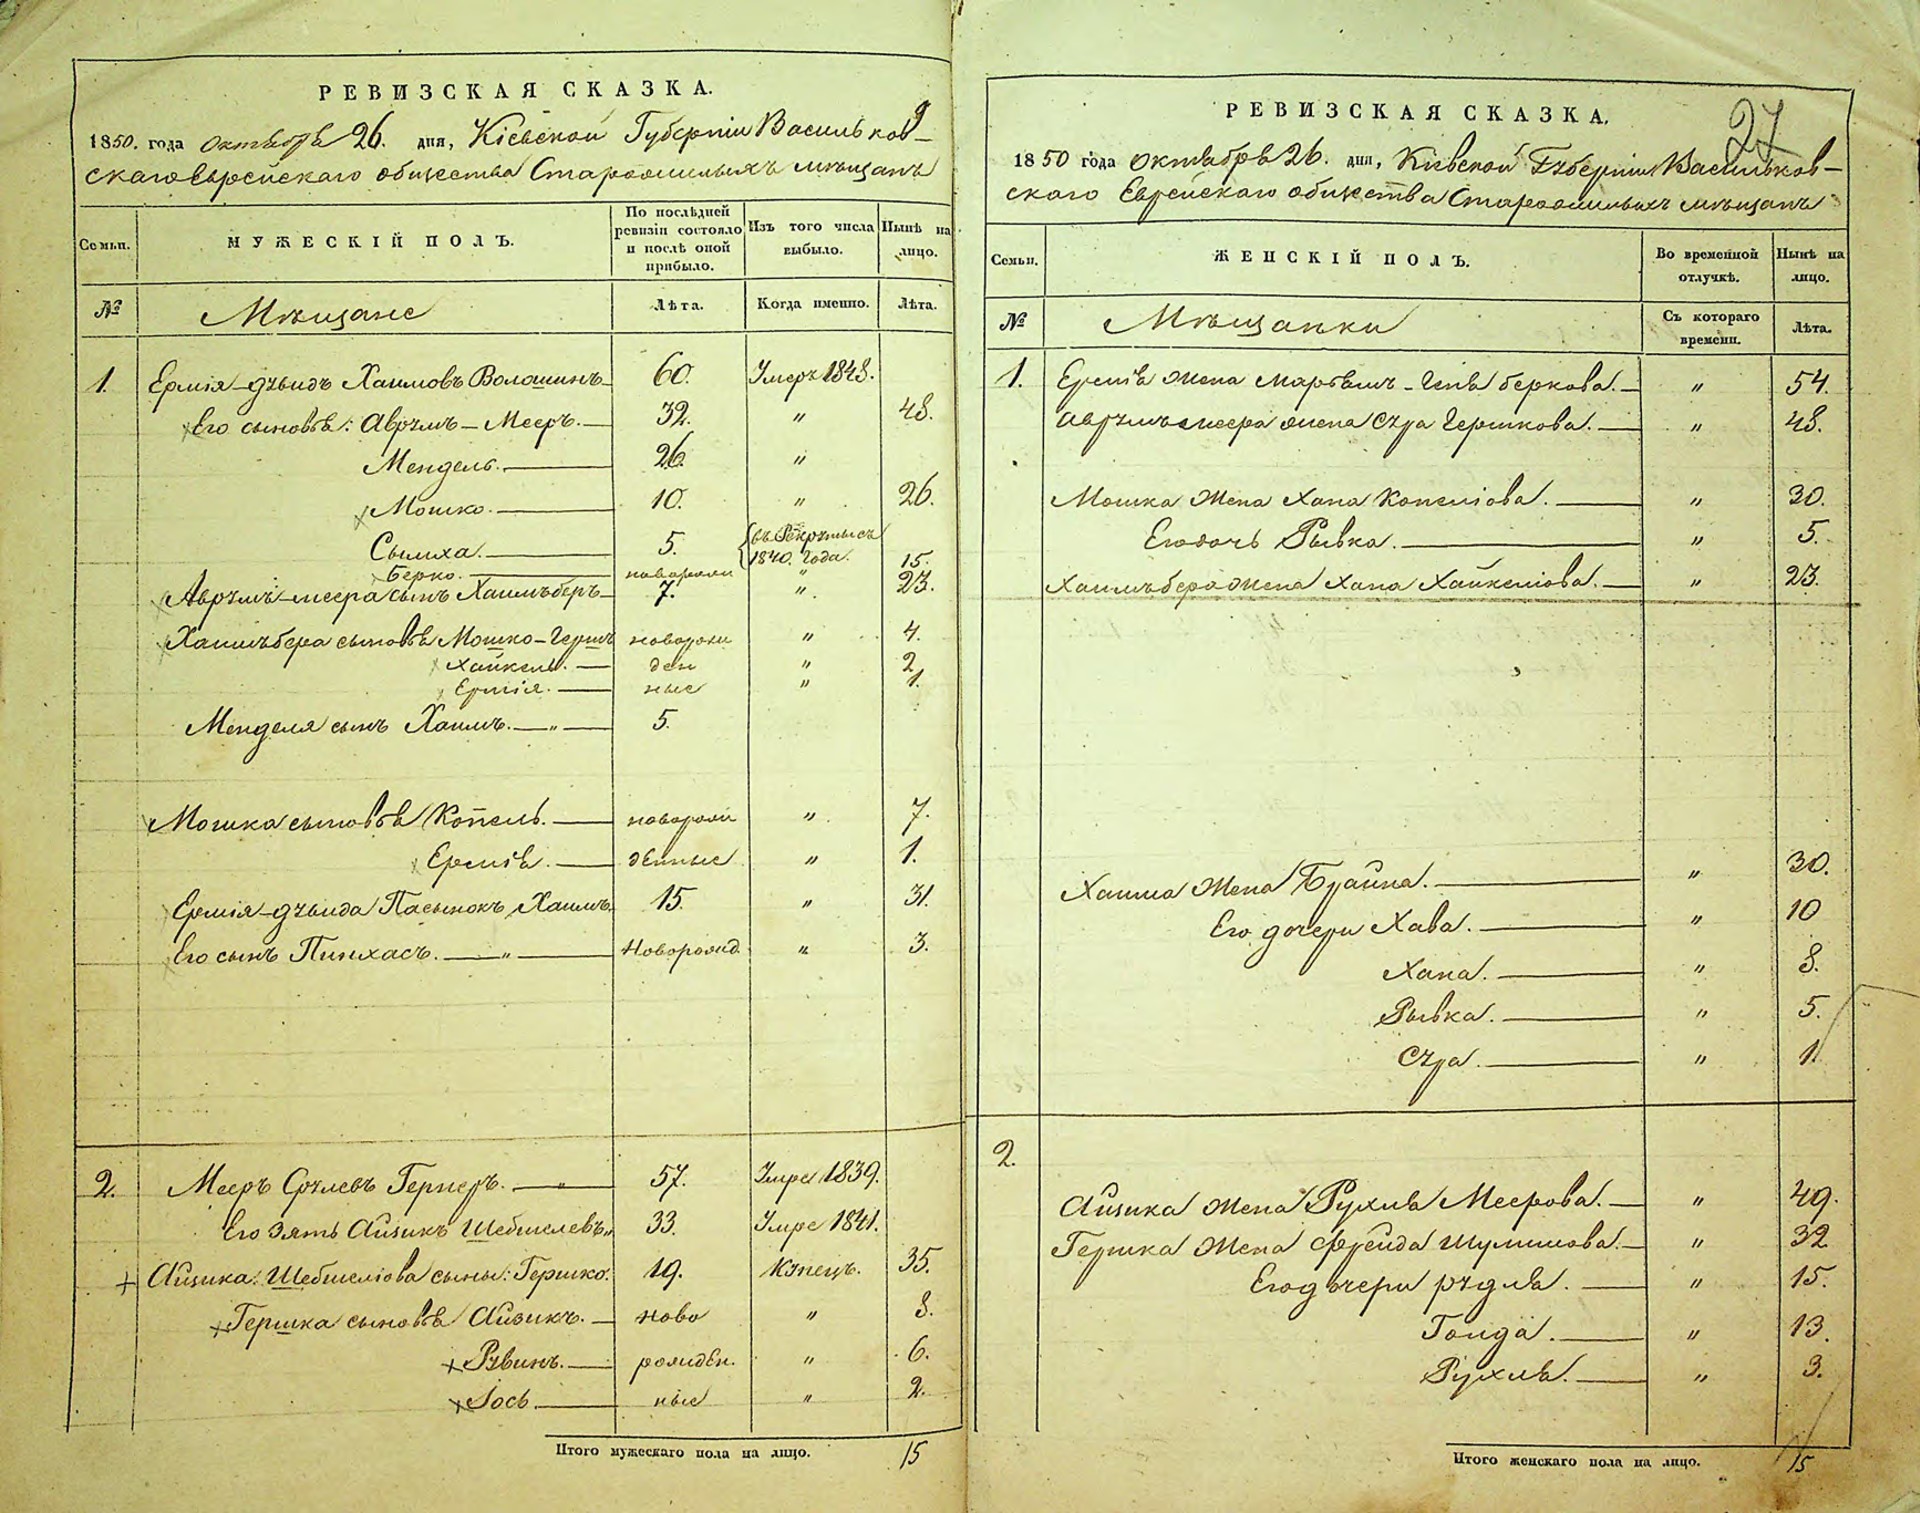 РЕВИЗСКАЯ СКАЗКА.
1850. года октября 26. дня, Кіевской Губерніи Васильков-
скаго еврейскаго общества Старожилыхъ мѣщанъ
9
Семьи.
МУЖЕСКІЙ ПОЛЪ.
По послѣдней ревизіи состояло и послѣ оной прибыло.
Изъ того числа выбыло.
Нынѣ на лицо.
№ Мѣщане Лѣта. Когда именно. Лѣта.
1. Ермія-дувидъ Хаимовъ Волошинъ 60. Умеръ 1848.
Его сыновья: Аврумъ-Мееръ. 32. " 48.
Мендель. 26. "
Мошко. 10. " 26.
Сымха. 5. въ Рекруты съ 1840. Года.
Берко. новорожд " 15.
Аврумъ-меера сынъ Хаимъберъ 7. " 23.
Хаимъбера сыновья Мошко-Гершъ новорож " 4.
Хайкель. ден " 2
Ермія. ные " 1.
Менделя сынъ Хаимъ. " 5.
Мошка сыновья Копель. новорож " 7.
Ермія. денные " 1.
Ермія-дувида Пасынокъ Хаимъ 15. " 31.
Его сынъ Пинхасъ. " Новорожд. " 3.
2. Мееръ Срулевъ Гернеръ. " 57. Умре 1839.
Его зять Айзикъ Шебшелевъ " 33. Умре 1841.
Айзика Шебшеліова сыны: Гершко. 19. Купецъ. 35.
Гершка сыновья Айзикъ. ново " 8.
Рувинъ. рожден. " 6.
Іось. ныє " 2.
Итого мужескаго пола на лицо. 15
РЕВИЗСКАЯ СКАЗКА.
27
1850 года октября 26. дня, Кіевской Губерніи Васильков-
скаго Еврейскаго общества Старожилыхъ мѣщанъ
Семьи.
ЖЕНСКІЙ ПОЛЪ.
Во временной отлучкѣ.
Нынѣ на лицо.
№ Мѣщанки Съ котораго времени. Лѣта.
1. Ермія жена Марьямъ-Геня беркова. " 54.
Аврумъмеера жена Сура Гершкова. " 48.
Мошка жена Хана Копеліова. " 30.
Его дочь Рывка. " 5.
Хаимъбера жена Хана Хайкеліова. " 23.
Хаима жена Брайна. " 30.
Его дочери Хава. " 10
Хана. " 8.
Рывка. " 5.
Сура. " 1
2.
Айзика жена Рухля Меерова. " 49.
Гершка жена Фрейда Шулимова. " 32
Его дочери Рудля. " 15.
Голда. " 13.
Рухля. " 3.
Итого женскаго пола на лицо. 15